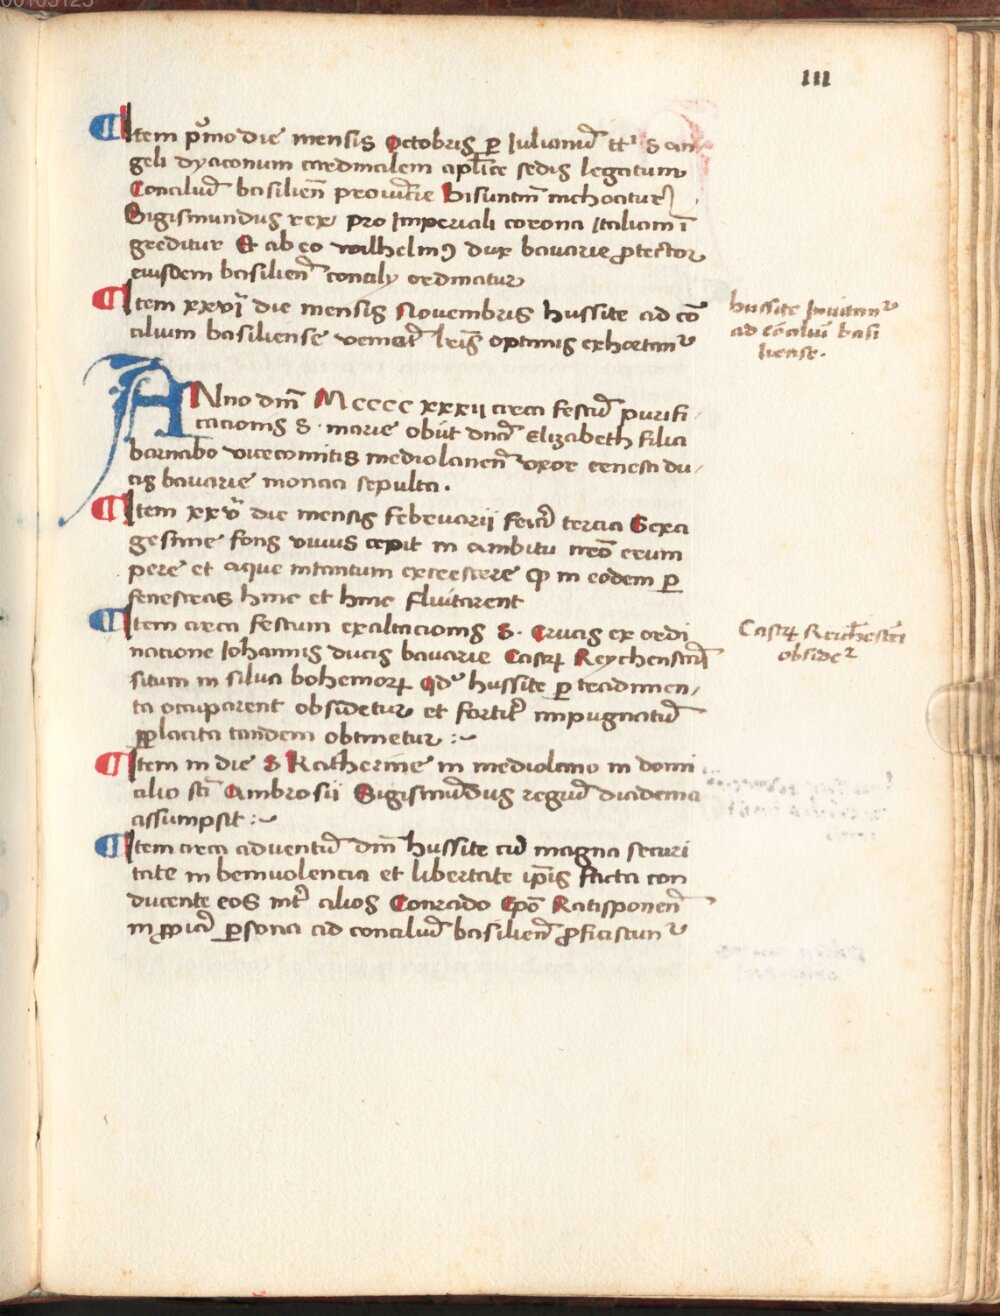 00103125
III
Item p̾mo die mensis Octobris ꝑ Iulianū tt̾ s an
geli dyaconum cardinalem aplīce sedis legatum
Conciliū basilien̄ prouīcie bisuntin̄ inchoatur
Sigismundus rex pro Imperiali corona Italiam ī
greditur Et ab eo wilhelmꝰ dux bauarie ꝓtector
eiusdem basilien̄ concily ordinatur
Item xxvj die mensis Nouembris hussite ad cō
cilium basiliense veniāt lr̄is optimis exhortan̾
hussite Inuitan̾
ad cōciliū basi
liense.
ANno dm̄ Mcccc xxxij circa festū purifi
cacionis S. marie obijt dn̄a Elizabeth filia
barnabo vicecomitis mediolanen̄ vxor ernesti du
cis bauarie monaci sepulta.
Item xxv die mensis februarij feīa tercia Sexa
gesime fons viuus cepit in ambitu nr̄o erum
pere et aque intantum excrescere ꝙ in eodem ꝑ
fenestras hinc et hinc fluitarent
Item circa festum exaltacionis S. Crucis ex ordi
nacione Iohannis ducis bauarie Castrꝝ Reychenstain̄
situm in silua bohemorꝝ qd̾ hussite ꝑ tradimen
ta occuparent obsidetur et fortit̾ impugnatū
ꝑ placita tandem obtinetur :~
Castrꝝ Reichēstei
obside̾
Item in die S Katherine in mediolano in domi
cilio sc̄i Ambrosii Sigismūdus regū diadema
assumpsit :~
Item circa aduentū dm̄ hussite cū magna securi
tate in beniuolencia et libertate ip̄is facta con
ducente eos int̾ alios Conrado Ep̄o Ratisponen̄
in ꝓpria ꝑsona ad conciliū basilien̄ ꝓficiscun̾